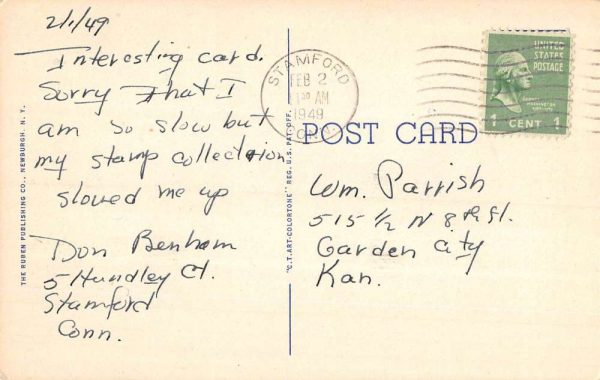 2/1/49
Interesting card.
Sorry That I
am so slow but
my stamp collection
slowed me up
Don Benham
5 Hundley Ct.
Stamford
Conn.
THE RUBEN PUBLISHING CO., NEWBURGH, N. Y.
"C.T. ART-COLORTONE" REG. U. S. PAT. OFF.
STAMFORD
FEB 2
AM
1949
CONN.
POST CARD
UNITED
STATES
POSTAGE
WASHINGTON
1 CENT 1
Wm. Parrish
515 1/2 N 8th St.
Garden City
Kan.